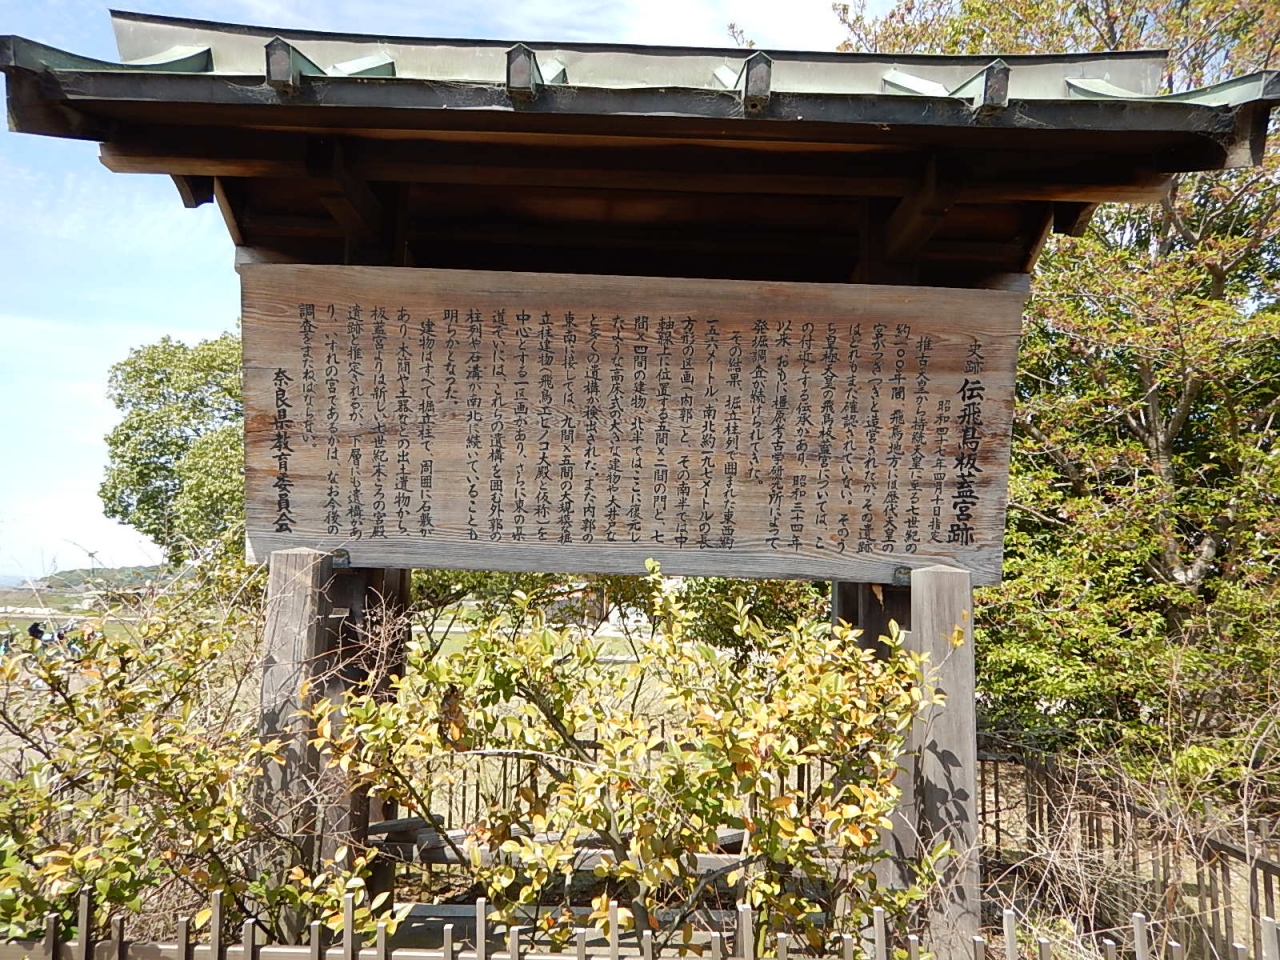 史跡 伝飛鳥板蓋宮跡
昭和四十七年四月十日指定
推古天皇から持統天皇に至る七世紀の
約一〇〇年間、飛鳥地方には歴代天皇の
宮がつぎつぎと造営されたが、その遺跡
はどれもまだ確認されていない。そのう
ち皇極天皇の飛鳥板蓋宮については、こ
の付近とする伝承があり、昭和三四年
以来、おもに橿原考古学研究所によって
発掘調査が続けられてきた。
その結果、掘立柱列で囲まれた東西約
一五六メートル、南北約一九七メートルの長
方形の区画(内郭)と、その南半には中
軸線上に位置する五間×二間の門と、七
間×四間の建物、北半ではここに復元し
たような高床式の大きな建物や井戸な
ど多くの遺構が検出された。また内郭の
東南に接しては、九間×五間の大規模な掘
立柱建物(飛鳥エビノコ大殿と仮称)を
中心とする一区画があり、さらに東の県
道ぞいには、これらの遺構を囲む外郭の
柱列や石溝が南北に続いていることも
明らかとなった。
建物はすべて掘立柱で、周囲に石敷が
あり、木簡や土器などの出土遺物から、
板蓋宮よりは新しい七世紀末ころの宮殿
遺跡と推定されるが、下層にも遺構があ
り、いずれの宮であるかは、なお今後の
調査をまたねばならない。
奈良県教育委員会